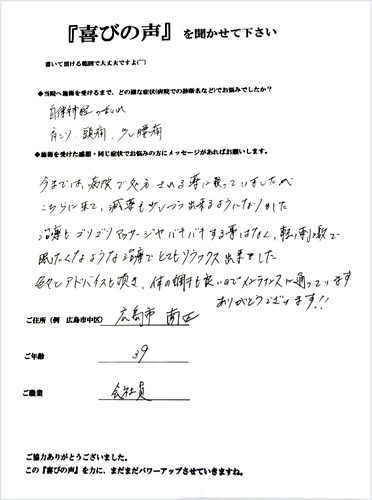 『喜びの声』を聞かせて下さい
書いて頂ける範囲で大丈夫ですよ(^^)
◆当院へ施術を受けるまで、どの様な症状(病院での診断名など)でお悩みでしたか?
自律神経の乱れ
肩こり、頭痛、少し腰痛
◆施術を受けた感想・同じ症状でお悩みの方にメッセージがあればお願いします。
今までは、病院で処方される薬に頼っていましたが
こちらに来て、減薬も少しづつ出来るようになりました
治療もゴリゴリマッサージやバキバキする事はなく、軽い刺激で
眠たくなるような治療でとてもリラックス出来ました
色々とアドバイスも頂き、体の調子も良いのでメンテナンスに通っています
ありがとうございます!!
ご住所(例 広島市中区) 広島市 南区
ご年齢 39
ご職業 会社員
ご協力ありがとうございました。
この『喜びの声』を力に、まだまだパワーアップさせていきますね。